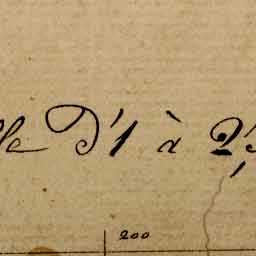 lle D'1 à 2
200